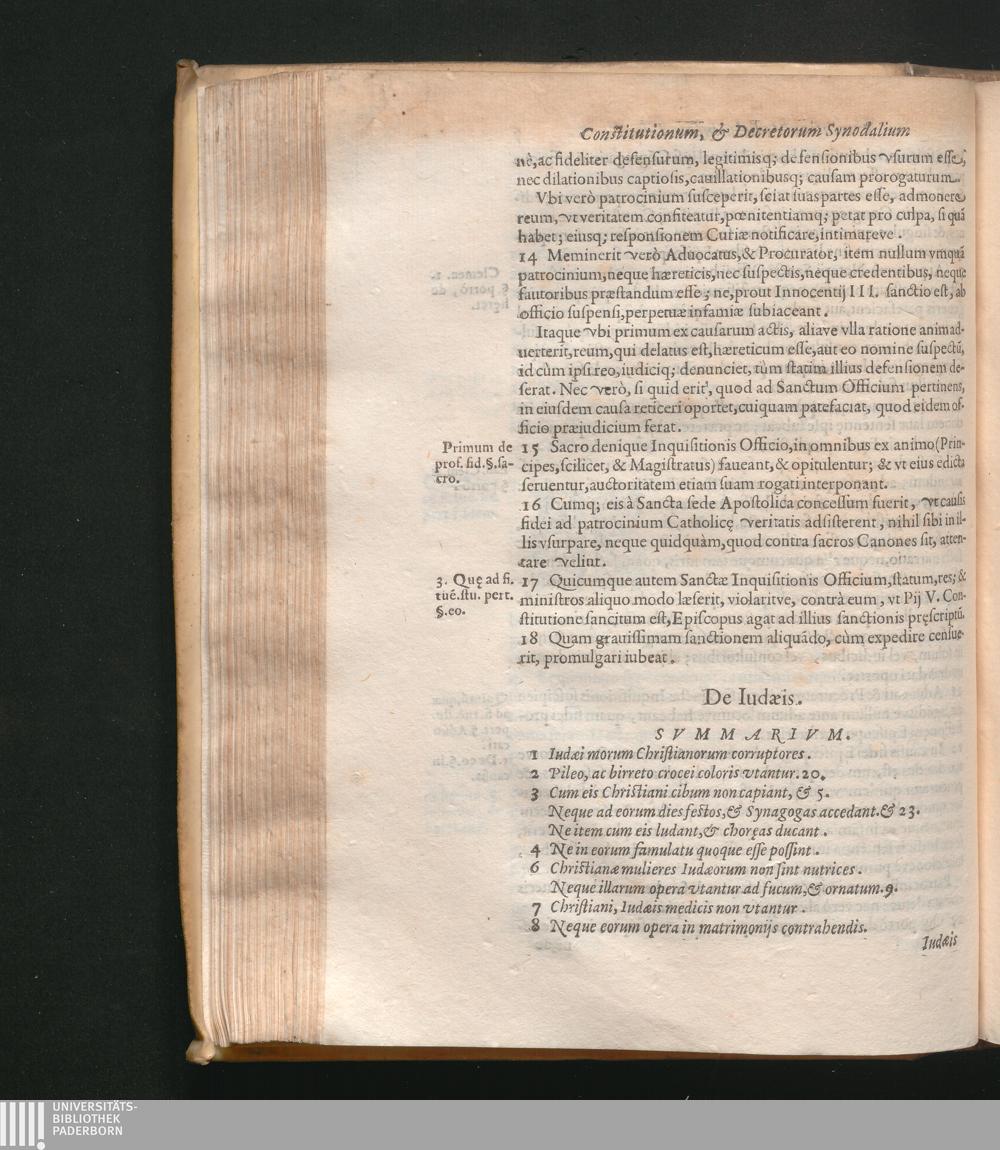 Constitutionum, & Decretorum Synodalium
nè, ac fideliter defensurum, legitimisq; defensionibus vsurum esse,
nec dilationibus captiosis, cauillationibusq; causam prorogaturum.
Vbi verò patrocinium susceperit, sciat suas partes esse, admonere
reum, vt veritatem confiteatur, pœnitentiamq; petat pro culpa, si quā
habet; eiusq; responsionem Curiæ notificare, intimareve.
14 Meminerit verò Aduocatus, & Procurator, item nullum vmquā
patrocinium, neque hæreticis, nec suspectis, neque credentibus, neque
fautoribus præstandum esse; ne, prout Innocentij III. sanctio est, ab
officio suspensi, perpetuæ infamiæ subiaceant.
Itaque vbi primum ex causarum actis, aliave vlla ratione animad-
uerterit, reum, qui delatus est, hæreticum esse, aut eo nomine suspectū,
id cùm ipsi reo, iudiciq; denunciet, tùm statim illius defensionem de-
serat. Nec verò, si quid erit, quod ad Sanctum Officium pertinens,
in eiusdem causa reticeri oportet, cuiquam patefaciat, quod eidem of-
ficio præiudicium ferat.
Primum de
prof. fid. §. sa-
cro.
15 Sacro denique Inquisitionis Officio, in omnibus ex animo (Prin-
cipes, scilicet, & Magistratus) faueant, & opitulentur; & vt eius edicta
seruentur, auctoritatem etiam suam rogati interponant.
16 Cumq; eis à Sancta sede Apostolica concessum fuerit, vt causis
fidei ad patrocinium Catholicę veritatis adsisterent, nihil sibi in il-
lis vsurpare, neque quidquàm, quod contra sacros Canones sit, atten-
tare velint.
3. Quę ad fi.
tuē. stu. pert.
§. eo.
17 Quicumque autem Sanctæ Inquisitionis Officium, statum, res; &
ministros aliquo modo læserit, violaritve, contrà eum, vt Pij V. Con-
stitutione sancitum est, Episcopus agat ad illius sanctionis pręscriptū.
18 Quam grauissimam sanctionem aliquādo, cùm expedire censue-
rit, promulgari iubeat.
De Iudæis.
SVMMARIVM.
1 Iudæi morum Christianorum corruptores.
2 Pileo, ac birreto crocei coloris vtantur. 20.
3 Cum eis Christiani cibum non capiant, & 5.
Neque ad eorum dies festos, & Synagogas accedant. & 23.
Ne item cum eis ludant, & choręas ducant.
4 Ne in eorum famulatu quoque esse possint.
6 Christianæ mulieres Iudæorum non sint nutrices.
Neque illarum opera vtantur ad fucum, & ornatum. 9.
7 Christiani, Iudæis medicis non vtantur.
8 Neque eorum opera in matrimonijs contrahendis.
Iudæis
UNIVERSITÄTS-
BIBLIOTHEK
PADERBORN